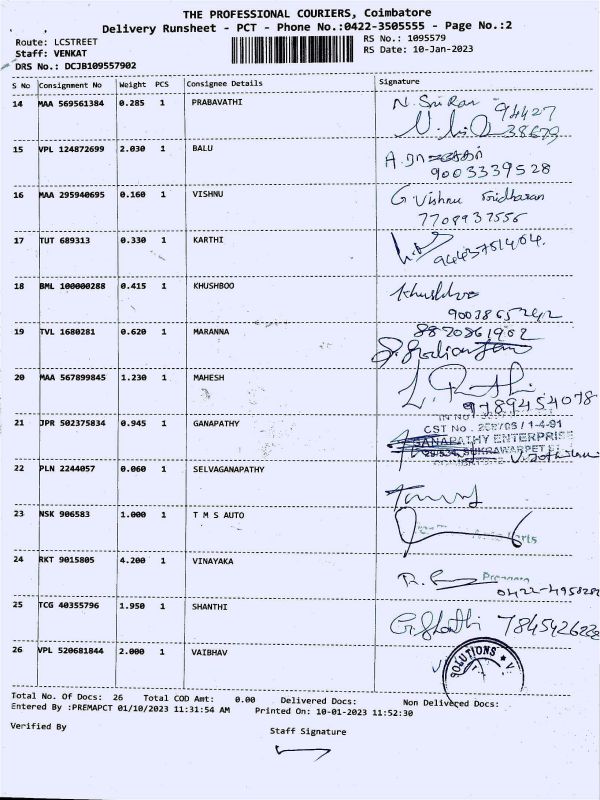 THE PROFESSIONAL COURIERS, Coimbatore
Delivery Runsheet - PCT - Phone No.:0422-3505555 - Page No.:2
Route: LCSTREET
RS No.: 1095579
Staff: VENKAT
RS Date: 10-Jan-2023
DRS No.: DCJB109557902
S No Consignment No Weight PCS Consignee Details Signature
14 MAA 569561384 0.285 1 PRABAVATHI N. Sri Ram 94427
38679
15 VPL 124872699 2.030 1 BALU
9003339528
16 MAA 295940695 0.160 1 VISHNU G Vishnu Sridharan
7708937556
17 TUT 689313 0.330 1 KARTHI
9443751404.
18 BML 100000288 0.415 1 KHUSHBOO Khushboo
9003865242
19 TVL 1680281 0.620 1 MARANNA 8870861902
20 MAA 567899845 1.230 1 MAHESH
9789454078
21 JPR 502375834 0.945 1 GANAPATHY
CST No. / 1-4-91
GANAPATHY ENTERPRISE
SUKRAWARPET ST
22 PLN 2244057 0.060 1 SELVAGANAPATHY
23 NSK 906583 1.000 1 T M S AUTO
24 RKT 9015805 4.200 1 VINAYAKA
0422-4958282
25 TCG 40355796 1.950 1 SHANTHI G. Shanthi 7845426222
26 VPL 520681844 2.000 1 VAIBHAV
SOLUTIONS ★ V
Total No. Of Docs: 26 Total COD Amt: 0.00 Delivered Docs: Non Delivered Docs:
Entered By :PREMAPCT 01/10/2023 11:31:54 AM Printed On: 10-01-2023 11:52:30
Verified By
Staff Signature